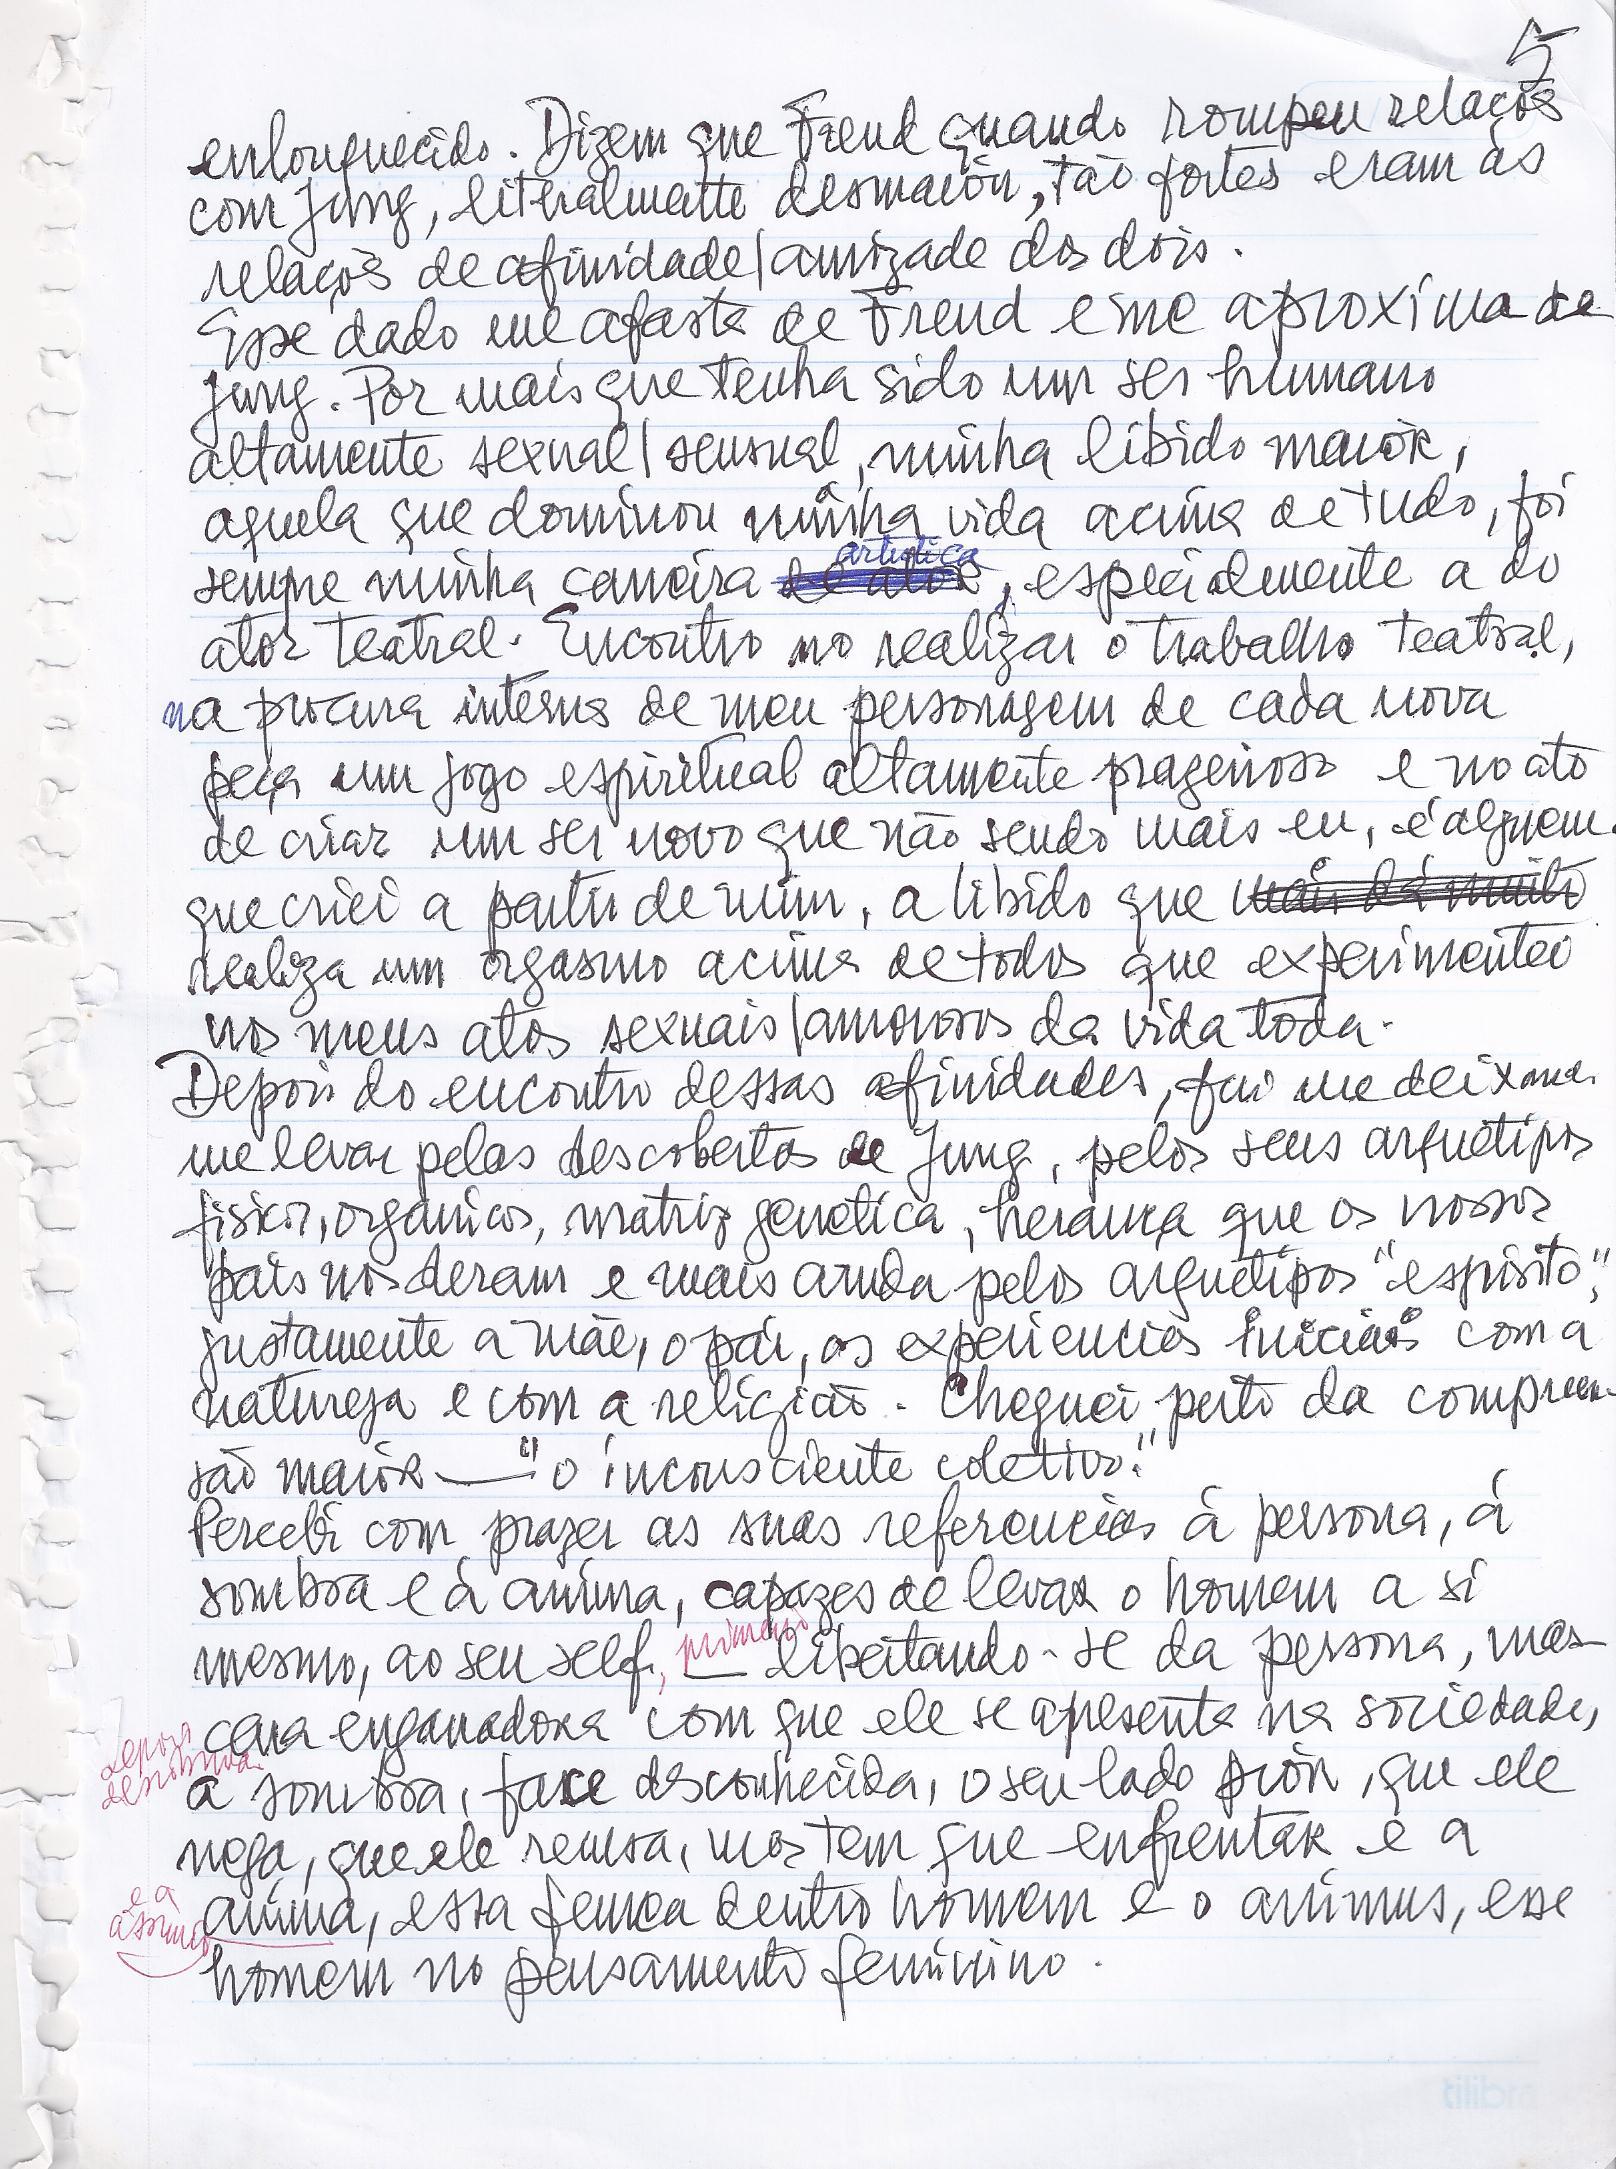 5
enlouquecido. Dizem que Freud quando rompeu relações
com Jung, literalmente desmaiou, tão fortes eram as
relações de afinidade/amizade dos dois.
Esse dado me afasta de Freud e me aproxima de
Jung. Por mais que tenha sido um ser humano
altamente sexual/sensual, minha libido maior,
aquela que dominou minha vida acima de tudo, foi
artística
sempre minha carreira de ator, especialmente a do
ator teatral. Encontro no realizar o trabalho teatral,
na procura interna de meu personagem de cada nova
peça um jogo espiritual altamente prazeiroso e no ato
de criar um ser novo que não sendo mais eu, é alguem
que criei a partir de mim, a libido que mais dá muito
realiza um orgasmo acima de todos que experimentei
nos meus atos sexuais/amorosos da vida toda.
Depois do encontro dessas afinidades, fui me deixando
me levar pelas descobertas de Jung, pelos seus arquétipos
fisicos, orgânicos, matriz genética, herança que os nossos
pais nos deram e mais ainda pelos arquétipos "espirito",
justamente a mãe, o pai, as experiencias iniciais com a
natureza e com a religião. Cheguei perto da compreen-
são maior — "o inconsciente coletivo."
Percebi com prazer as suas referencias á persona, á
sombra e á anima, capazes de levar o homem a si
primeiro
mesmo, ao seu self, — libertando-se da persona, mas-
cara enganadora com que ele se apresenta na sociedade,
depois
a sombra, face desconhecida, o seu lado pior, que ele
nega, que ele recusa, mas tem que enfrentar e a
e a
anima, essa femea dentro homem e o animus, esse
homem no pensamento feminino.
tilibra